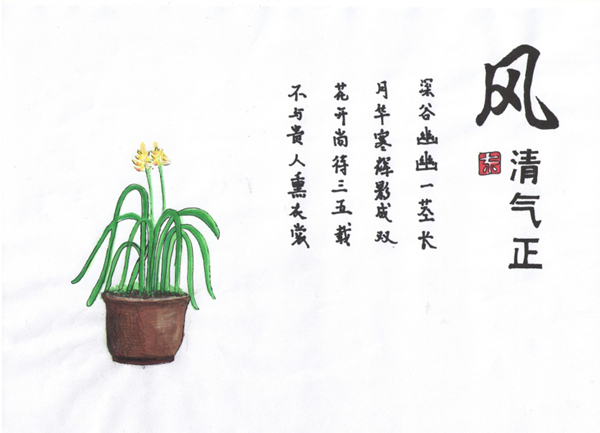 风清气正
深谷幽幽一茎长
月华寒辉影成双
花开尚待三五载
不与贵人熏衣裳